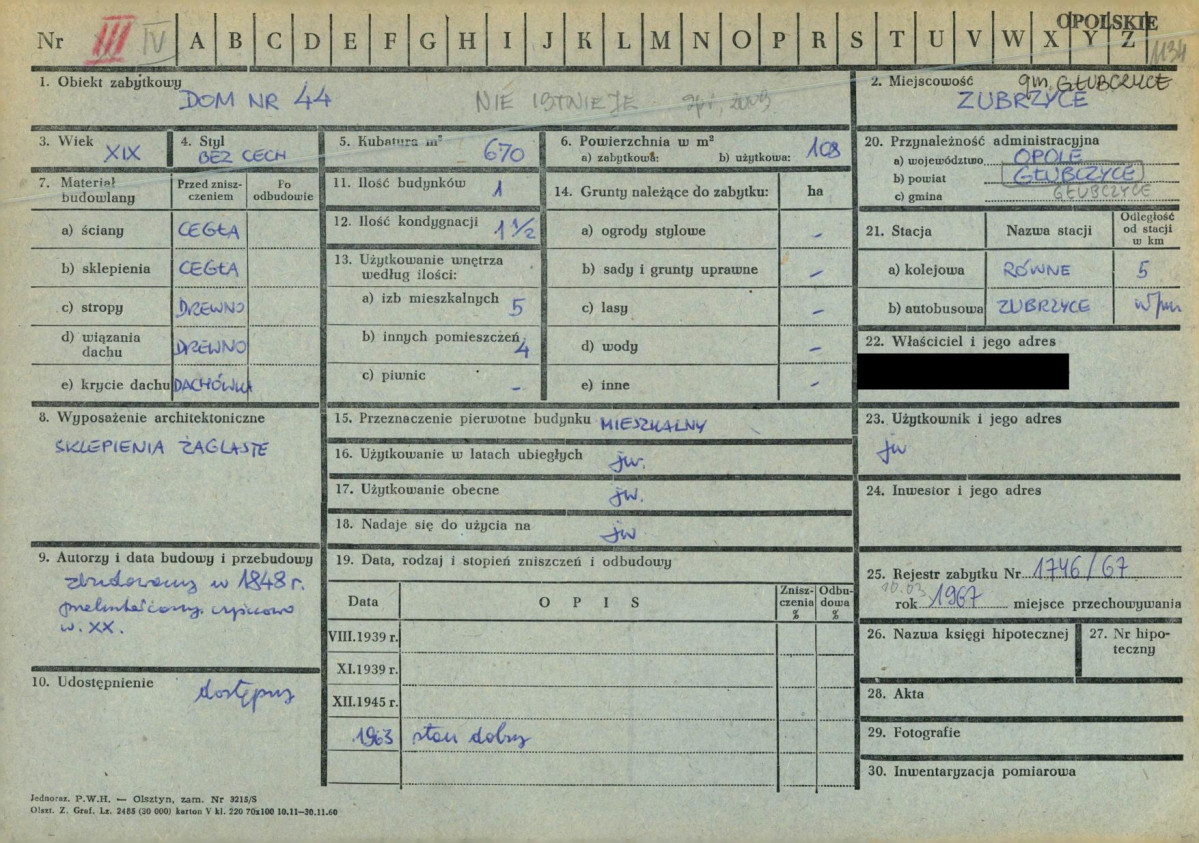 OPOLSKIE
Nr III IV A B C D E F G H I J K L M N O P R S T U V W X Y Z 1134
1. Obiekt zabytkowy
DOM NR 44
NIE ISTNIEJE
2. Miejscowość gm. GŁUBCZYCE
ZUBRZYCE
3. Wiek
XIX
4. Styl
BEZ CECH
5. Kubatura m³
670
6. Powierzchnia w m²
a) zabytkowa: b) użytkowa: 108
20. Przynależność administracyjna
a) województwo OPOLE
b) powiat GŁUBCZYCE
c) gmina GŁUBCZYCE
7. Materiał budowlany
Przed zniszczeniem
Po odbudowie
a) ściany CEGŁA
b) sklepienia CEGŁA
c) stropy DREWNO
d) wiązania dachu DREWNO
e) krycie dachu DACHÓWKA
11. Ilość budynków 1
12. Ilość kondygnacji 1 1/2
13. Użytkowanie wnętrza
według ilości:
a) izb mieszkalnych 5
b) innych pomieszczeń 4
c) piwnic -
14. Grunty należące do zabytku: ha
a) ogrody stylowe -
b) sady i grunty uprawne -
c) lasy -
d) wody -
e) inne -
21. Stacja
Nazwa stacji
Odległość od stacji w km
a) kolejowa RÓWNE 5
b) autobusowa ZUBRZYCE
22. Właściciel i jego adres
8. Wyposażenie architektoniczne
SKLEPIENIA ŻAGLASTE
15. Przeznaczenie pierwotne budynku MIESZKALNY
16. Użytkowanie w latach ubiegłych jw.
17. Użytkowanie obecne jw.
18. Nadaje się do użycia na jw
23. Użytkownik i jego adres
jw
24. Inwestor i jego adres
9. Autorzy i data budowy i przebudowy
zbudowany w 1848 r.
w. XX.
10. Udostępnienie
dostępny
19. Data, rodzaj i stopień zniszczeń i odbudowy
Data
O P I S
Zniszczenia %
Odbudowa %
VIII.1939 r.
XI.1939 r.
XII.1945 r.
1963 stan dobry
25. Rejestr zabytku Nr 1746/67
10.03
rok 1967 miejsce przechowywania
26. Nazwa księgi hipotecznej
27. Nr hipoteczny
28. Akta
29. Fotografie
30. Inwentaryzacja pomiarowa
Jednoraz. P.W.H. — Olsztyn, zam. Nr 3215/S
Olszt. Z. Graf. Lz. 2485 (20 000) karton V kl. 220 70x100 10.11—30.11.60